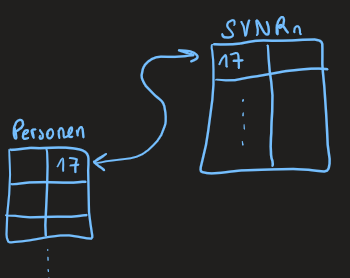 SVNRn
17
Personen
17